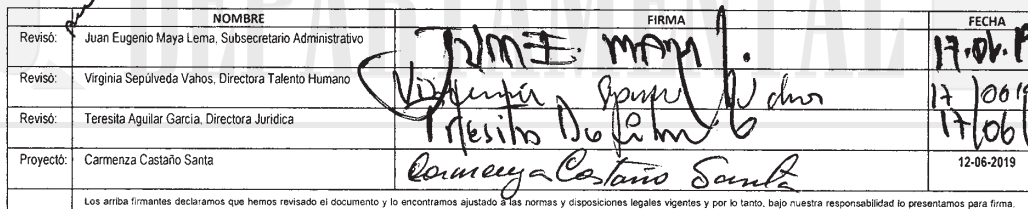 DEPARTAMENTAL
NOMBRE FIRMA FECHA
Revisó: Juan Eugenio Maya Lema, Subsecretario Administrativo
Revisó: Virginia Sepúlveda Vahos, Directora Talento Humano Virginia
Revisó: Teresita Aguilar García, Directora Jurídica Teresita Aguilar 17/06
Proyectó: Carmenza Castaño Santa Carmenza Castaño Santa 12-06-2019
Los arriba firmantes declaramos que hemos revisado el documento y lo encontramos ajustado a las normas y disposiciones legales vigentes y por lo tanto, bajo nuestra responsabilidad lo presentamos para firma.